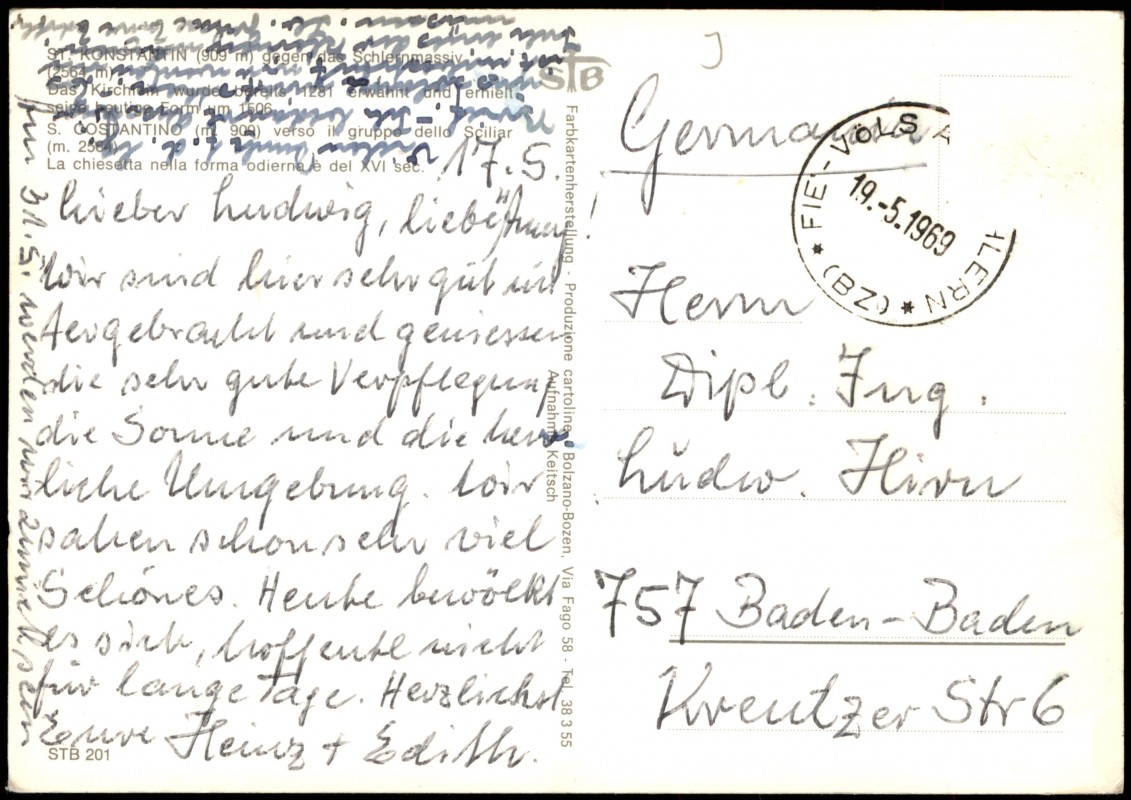 ST. KONSTANTIN (909 m) gegen das Schlernmassiv
(2564 m)
Das Kirchlein wurde bereits 1281 erwähnt und erhielt
seine heutige Form um 1506.
S. COSTANTINO (m. 909) verso il gruppo dello Sciliar
(m. 2564)
La chiesetta nella forma odierna è del XVI sec.
17.5.
Lieber Ludwig, liebe
Wir sind hier sehr gut un
tergebracht und geniessen
die sehr gute Verpflegung
die Sonne und die herr
liche Umgebung. Wir
sahen schon sehr viel
Schönes. Heute bewölkt
es sich, hoffentl nicht
für lange Tage. Herzlichst
Eure Heinz + Edith.
STB 201
am 31.5. werden wir zurück sein
STB
Farbkartenherstellung - Produzione cartoline, Bolzano-Bozen, Via Fago 58 - Tel. 38 3 55
Aufnahme Keitsch
Germania
FIE'-VÖLS A
19.-5.1969
LERN
(BZ)
Herrn
Dipl. Ing.
Ludw. Hirn
757 Baden-Baden
Kreutzer Str 6